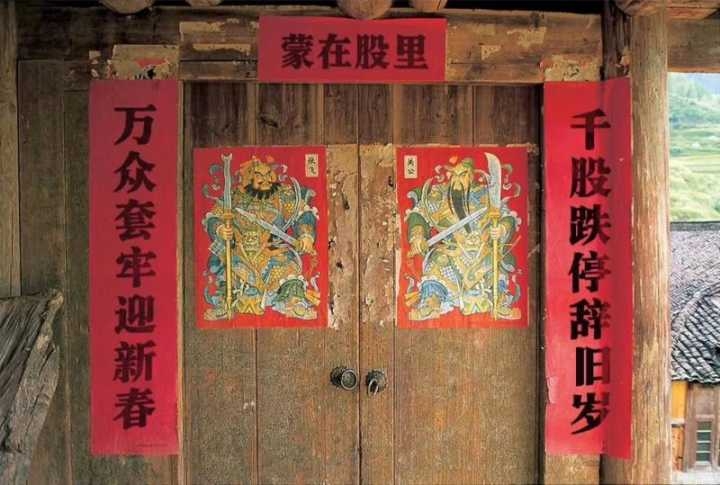 蒙在股里
千股跌停辞旧岁
万众套牢迎新春
张飞
关公